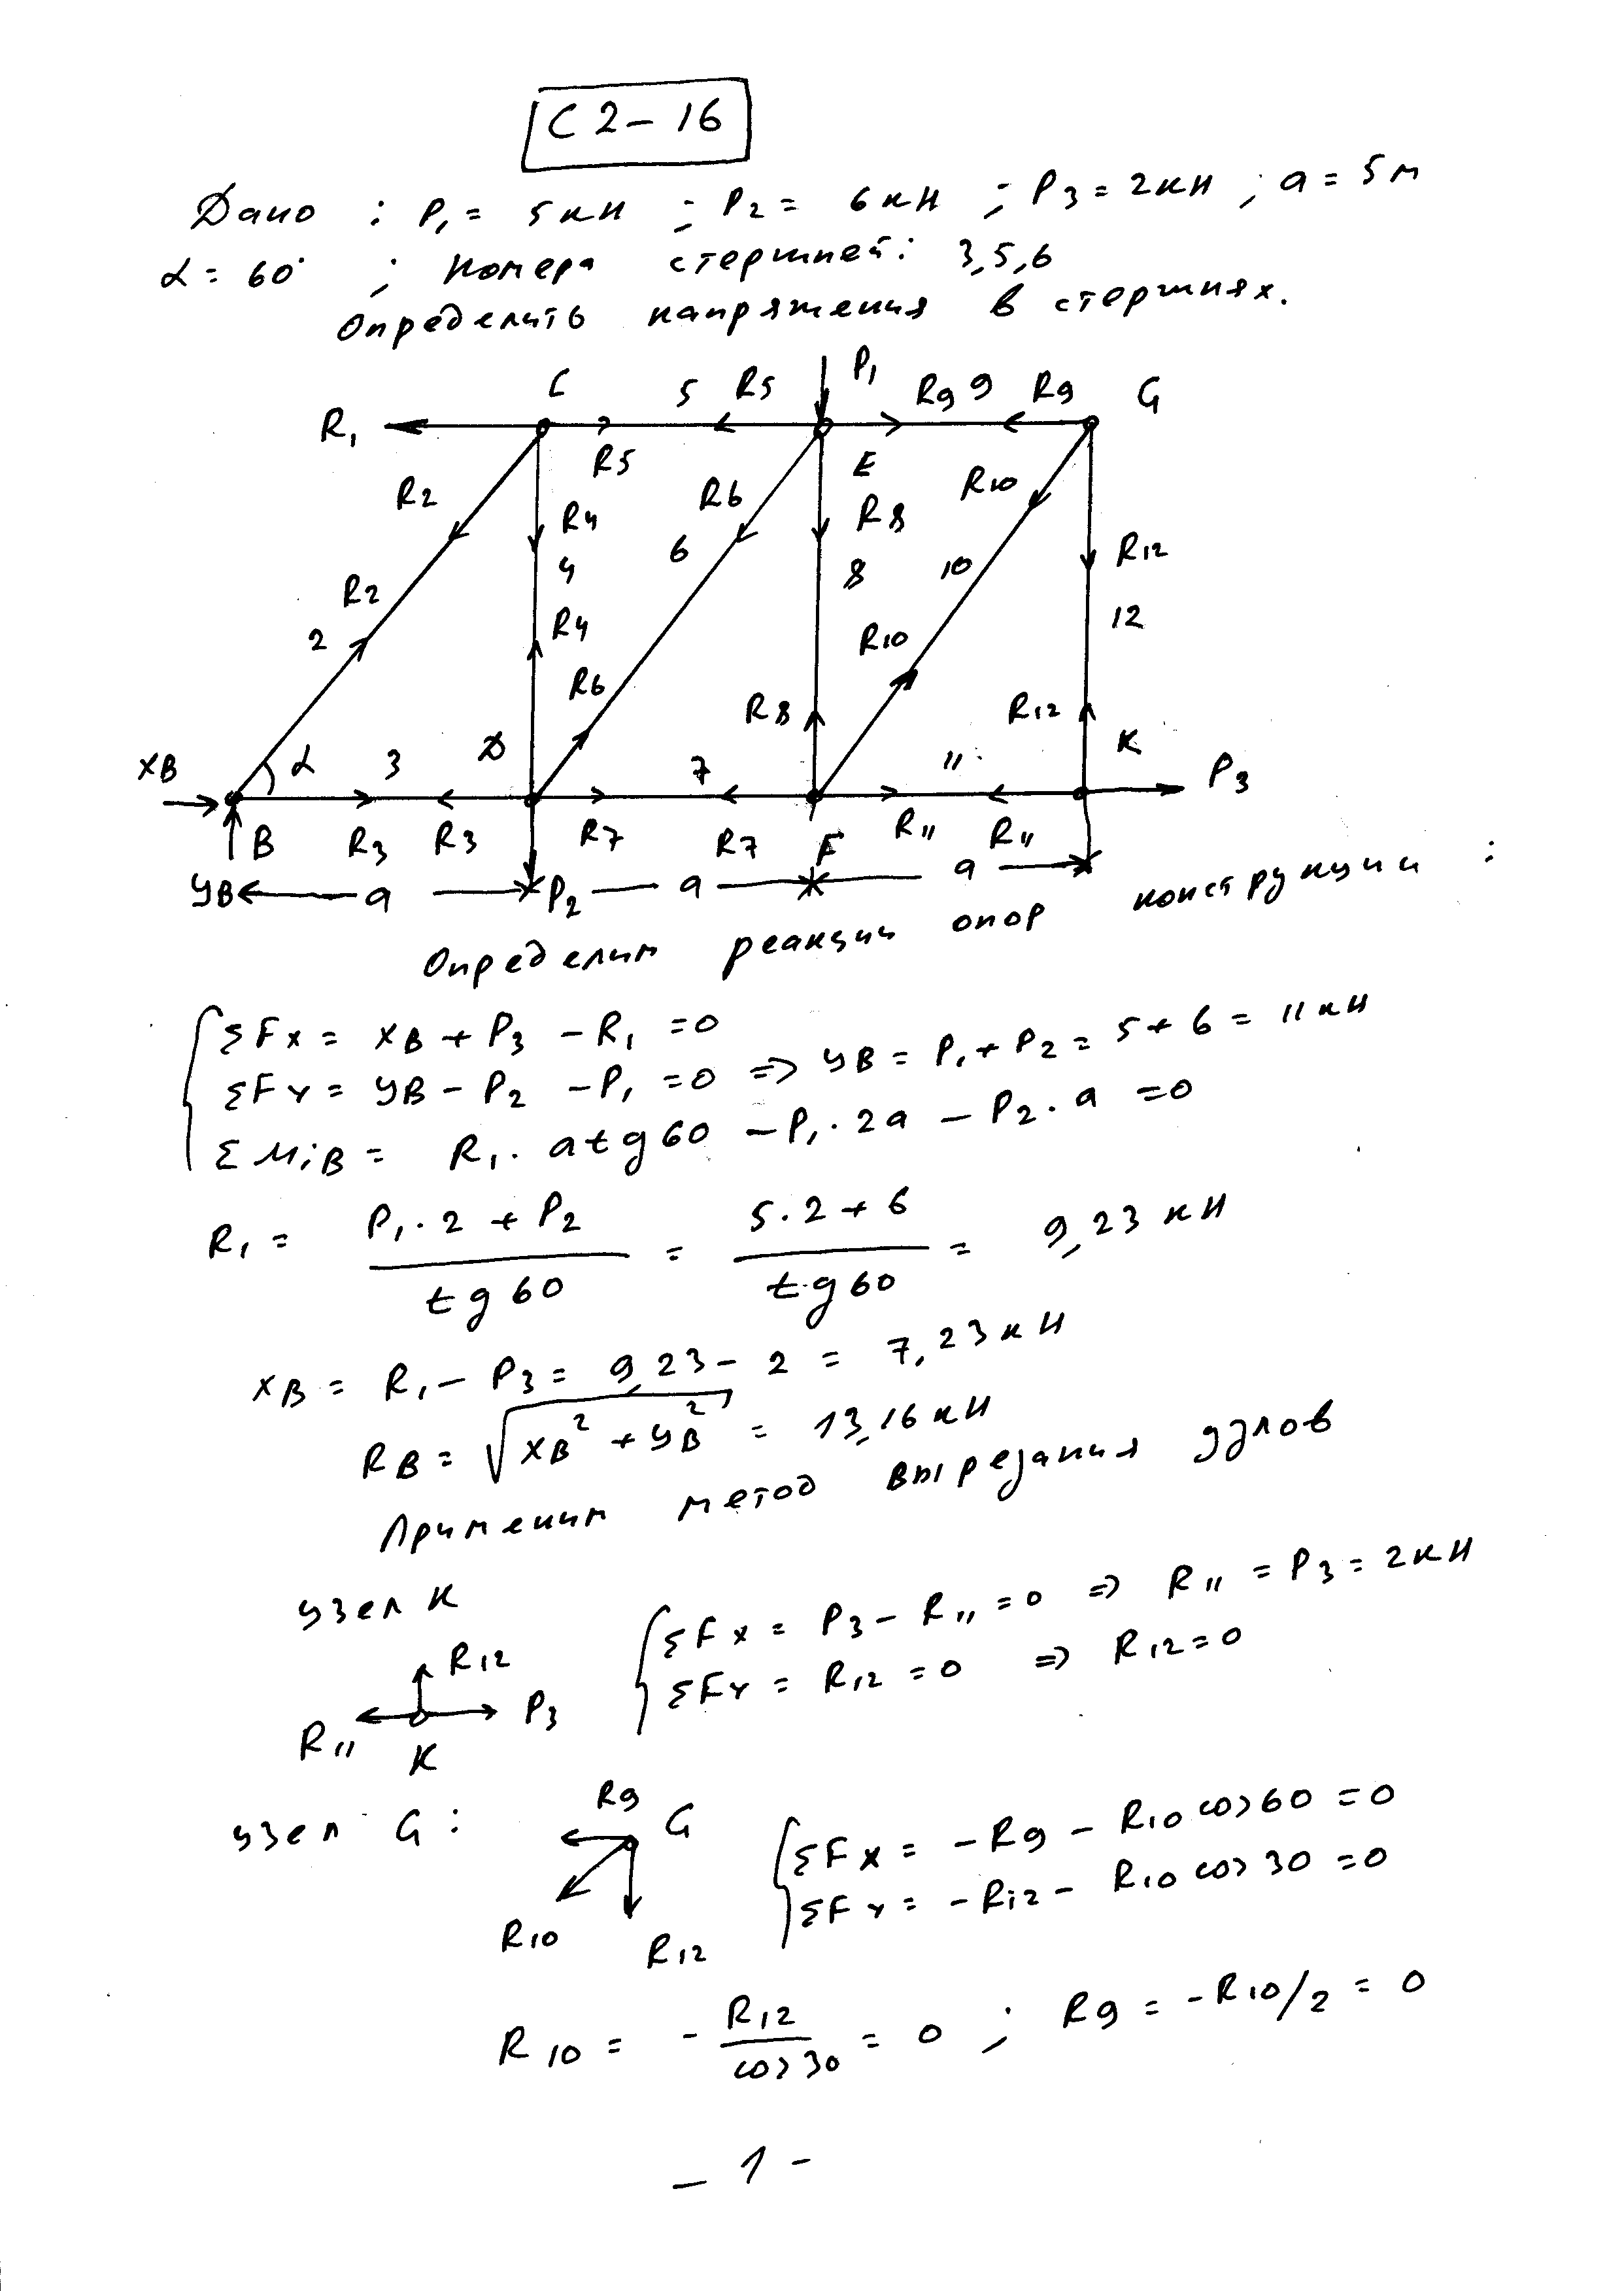 С 2 – 16
Дано : P₁ = 5 кН ; P₂ = 6 кН ; P₃ = 2 кН ; a = 5 м
α = 60° ; Номера стержней: 3, 5, 6
Определить напряжения в стержнях.
C 5 R5 P₁ R9 9 R9 G
R₁
R5 E
R2 R4 R6 R8 R10
6 R12
4 8 10
R2
2 R4 R10 12
R6
R8 R12
XB α 3 D 7 11 K P₃
B R3 R3 R7 R7 F R11 R11
YB a P₂ a a
Определим реакции опор конструкции :
ΣFx = XB + P₃ – R₁ = 0
ΣFY = YB – P₂ – P₁ = 0 => YB = P₁ + P₂ = 5 + 6 = 11 кН
ΣMiB = R₁ · a tg 60 – P₁ · 2a – P₂ · a = 0
R₁ = (P₁ · 2 + P₂) / tg 60 = (5 · 2 + 6) / tg 60 = 9,23 кН
XB = R₁ – P₃ = 9,23 – 2 = 7,23 кН
RB = √(XB² + YB²) = 13,16 кН
Применим метод вырезания узлов
узел K
R12
R11 K P₃
ΣFx = P₃ – R11 = 0 => R11 = P₃ = 2 кН
ΣFY = R12 = 0 => R12 = 0
узел G :
R9 G
R10 R12
ΣFx = – R9 – R10 cos 60 = 0
ΣFY = – R12 – R10 cos 30 = 0
R10 = – R12 / cos 30 = 0 ; R9 = – R10/2 = 0
– 1 –